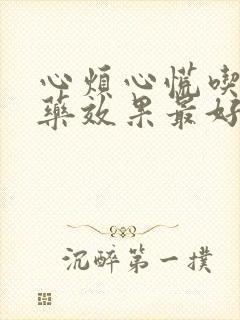 心煩心慌喫
藥效果最好
沉醉第一撲